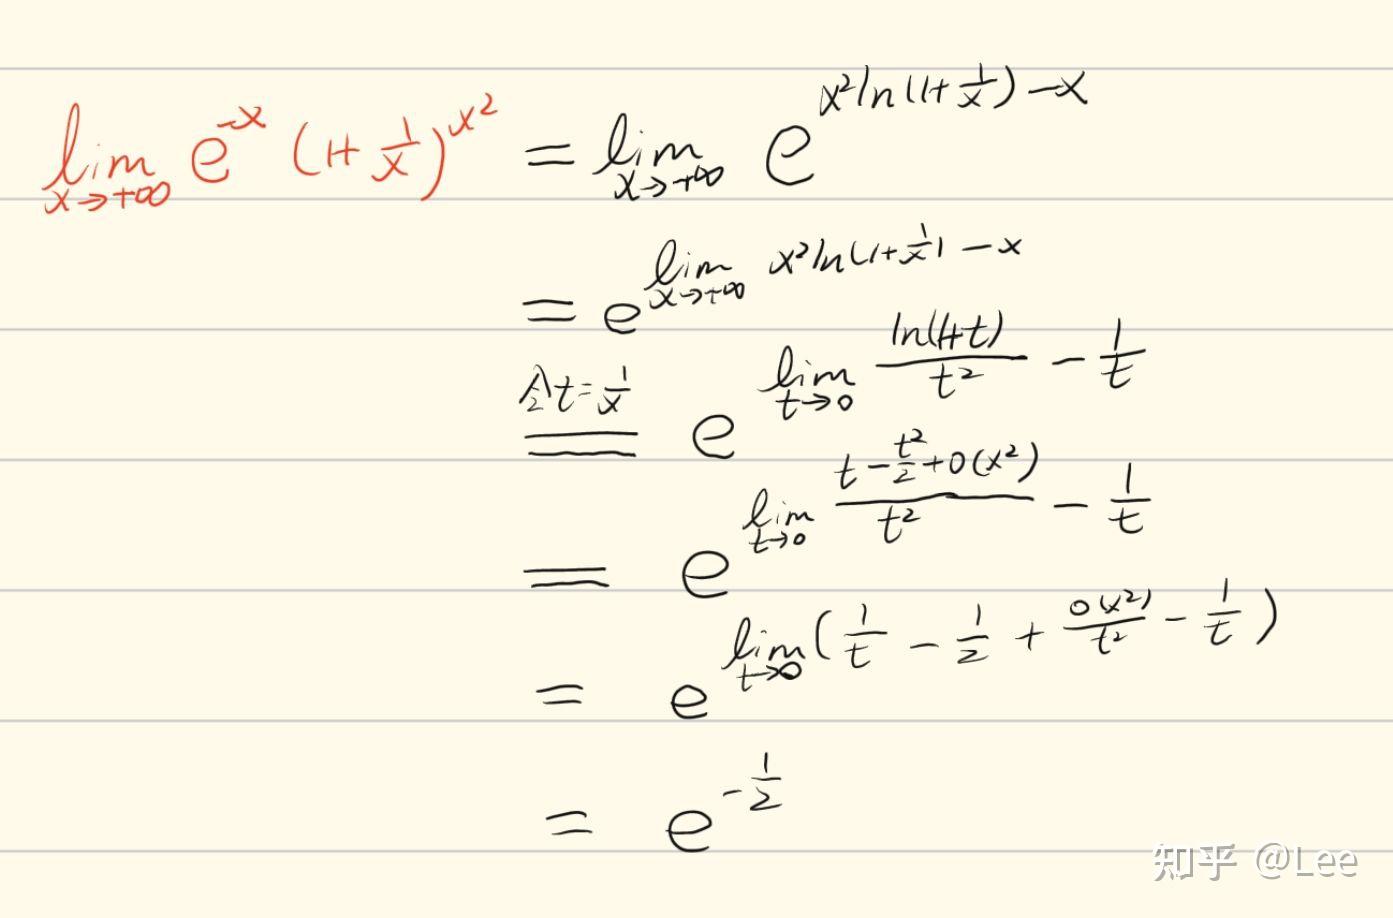 lim x→+∞ e^{-x} (1+1/x)^{x^2} = lim x→+∞ e^{x^2 ln(1+1/x) - x}
= e^{lim x→+∞ x^2 ln(1+1/x) - x}
令t=1/x = e^{lim t→0 ln(1+t)/t^2 - 1/t}
= e^{lim t→0 (t - t^2/2 + o(x^2))/t^2 - 1/t}
= e^{lim t→0 (1/t - 1/2 + o(x^2)/t^2 - 1/t)}
= e^{-1/2}
知乎 @Lee